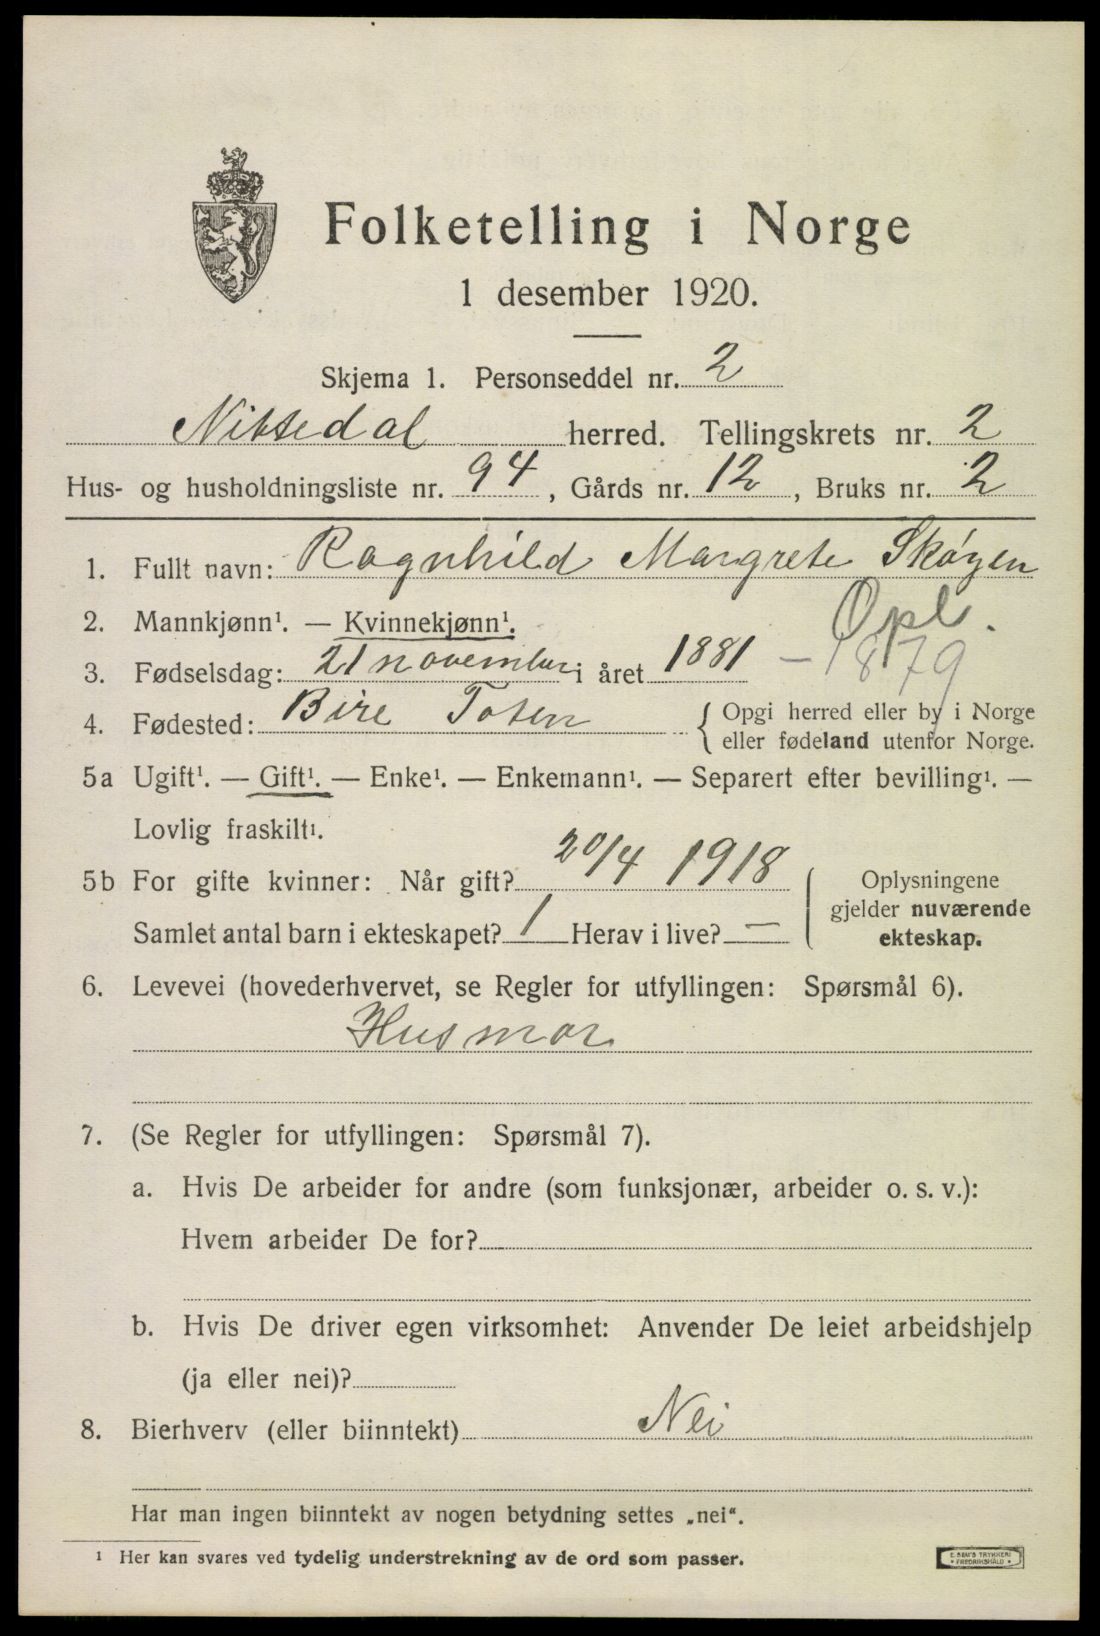 Folketelling i Norge
1 desember 1920.
Skjema 1. Personseddel nr. 2
Nittedal herred. Tellingskrets nr. 2
Hus- og husholdningsliste nr. 94, Gårds nr. 12, Bruks nr. 2
1. Fullt navn: Ragnhild Margrete Skøyen
Opl.
2. Mannkjønn¹. — Kvinnekjønn¹.
3. Fødselsdag: 21 november i året 1881 – 1879
4. Fødested: Bire Toten { Opgi herred eller by i Norge
eller fødeland utenfor Norge.
5a Ugift¹. — Gift¹. — Enke¹. — Enkemann¹. — Separert efter bevilling¹. —
Lovlig fraskilt¹.
5b For gifte kvinner: Når gift? 20/4 1918
Samlet antal barn i ekteskapet? 1 Herav i live? —
Oplysningene
gjelder nuværende
ekteskap.
6. Levevei (hovederhvervet, se Regler for utfyllingen: Spørsmål 6).
Husmor
7. (Se Regler for utfyllingen: Spørsmål 7).
a. Hvis De arbeider for andre (som funksjonær, arbeider o. s. v.):
Hvem arbeider De for?
b. Hvis De driver egen virksomhet: Anvender De leiet arbeidshjelp
(ja eller nei)?
8. Bierhverv (eller biinntekt) Nei
Har man ingen biinntekt av nogen betydning settes „nei“.
¹ Her kan svares ved tydelig understrekning av de ord som passer.
E. SEM'S TRYKKERI
• FREDRIKSHALD •